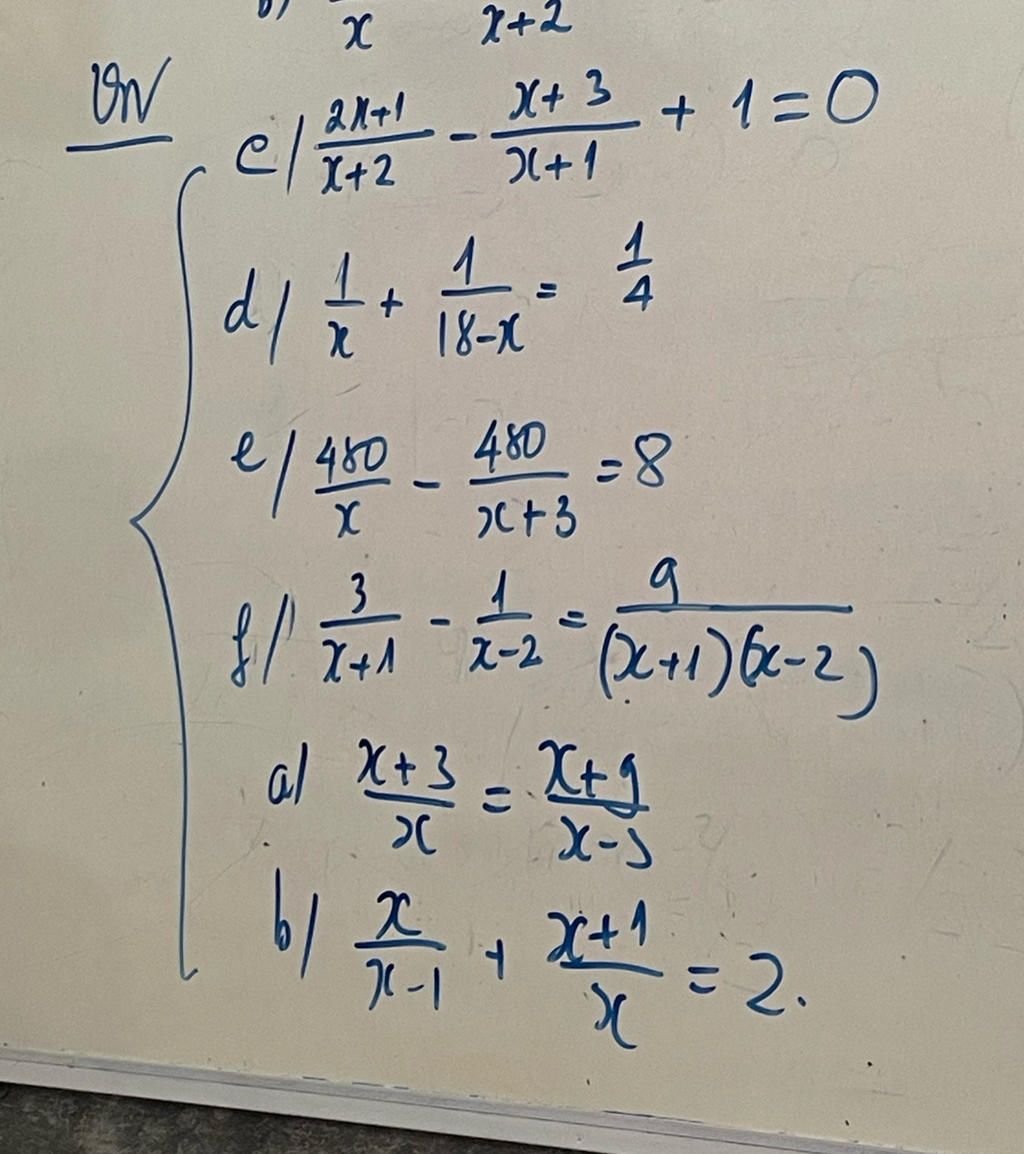 b/ x x+2
VN
c/ (2x+1)/(x+2) - (x+3)/(x+1) + 1 = 0
d/ 1/x + 1/(18-x) = 1/4
e/ 480/x - 480/(x+3) = 8
f/ 3/(x+1) - 1/(x-2) = 9/((x+1)(x-2))
a/ (x+3)/x = (x+9)/(x-3)
b/ x/(x-1) + (x+1)/x = 2.